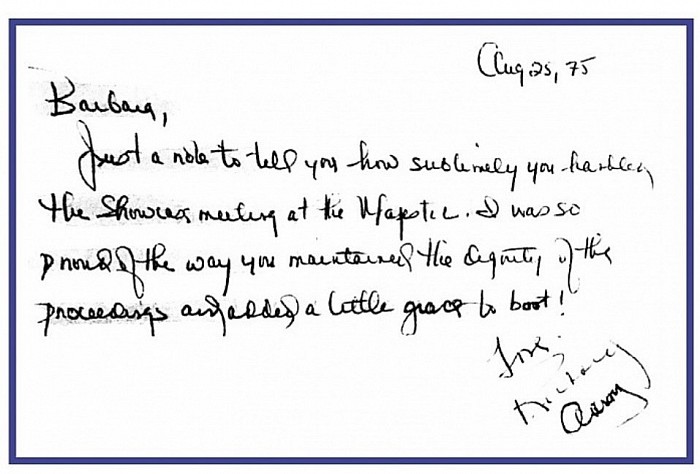 Aug 25, 75
Barbara,
Just a note to tell you how sublimely you handled
the Showcase meeting at the Majestic. I was so
proud of the way you maintained the dignity of the
proceedings and added a little grace to boot!
Love,
Richard